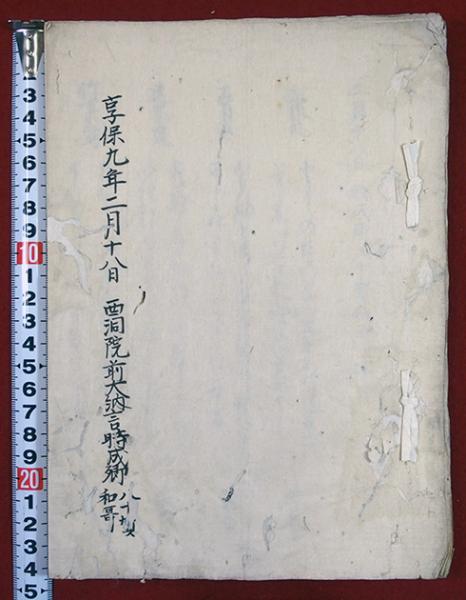 享保九年二月十八日 西洞院前大納言時成卿
八十賀
和哥
3
4
5
6
7
8
9
10
1
2
3
4
5
6
7
8
9
20
1
2
3
4
5